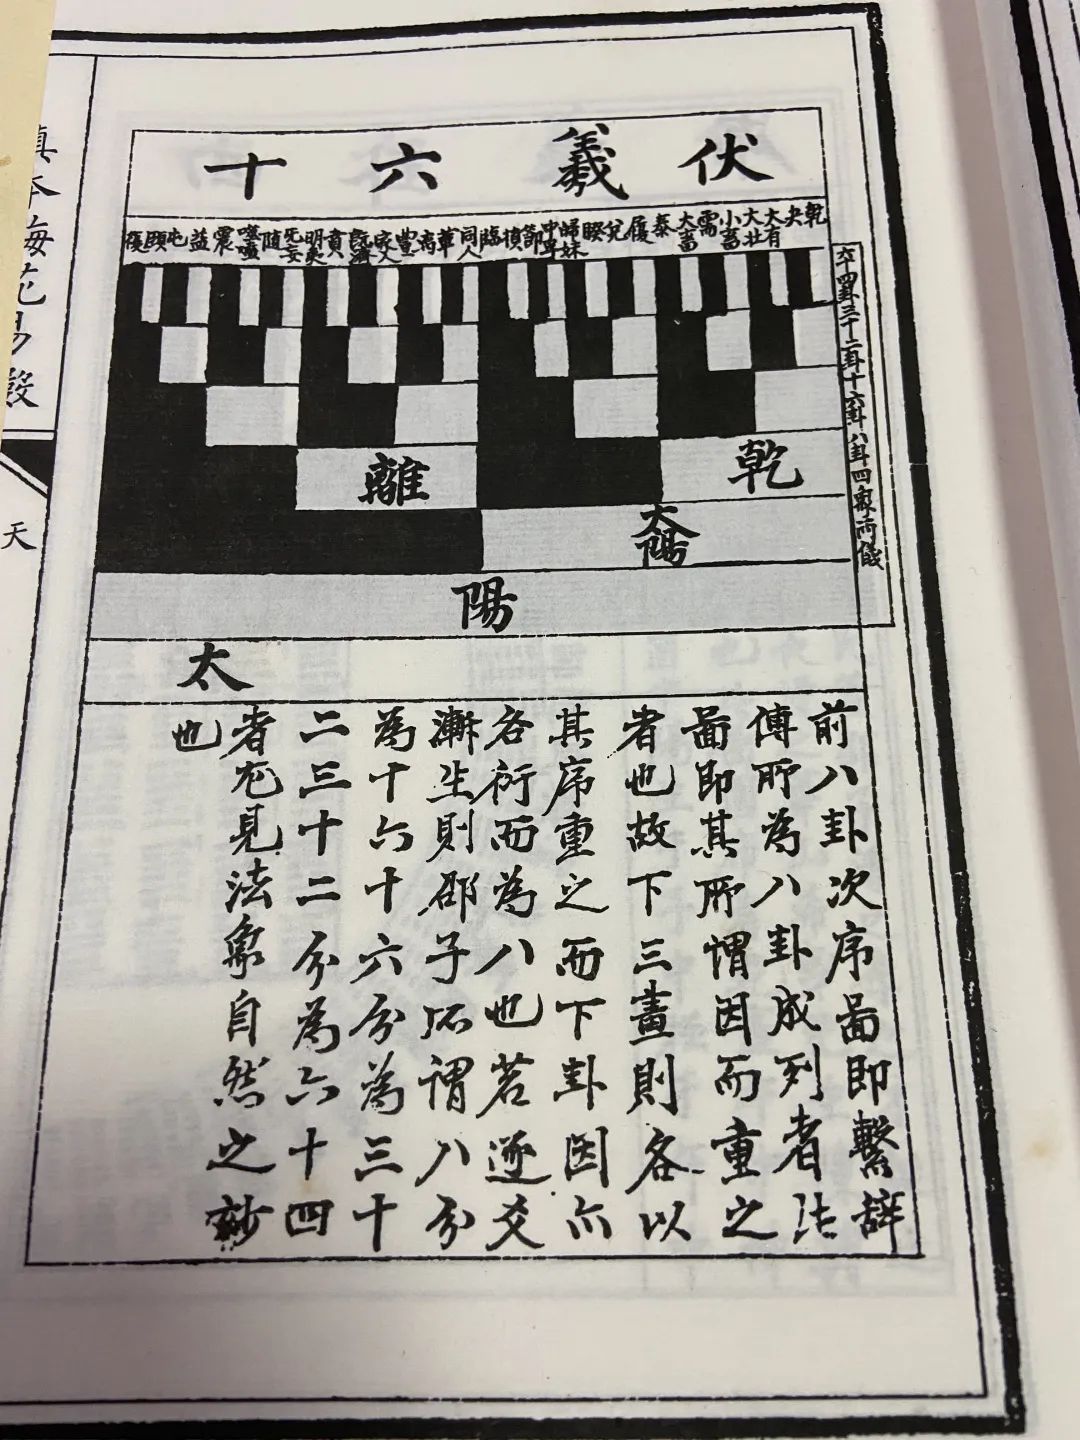 伏羲六十
乾 夬 大有 大壯 小畜 需 大畜 泰 履 兌 睽 歸妹 中孚 節 損 臨 同人 革 離 豐 家人 既濟 賁 明夷 无妄 隨 噬嗑 震 益 屯 頤 復
四卦三十二卦十六卦八卦四象兩儀
乾
離
太陽
陽
太
前八卦次序啚即繫辭
傳所為八卦成列者
啚即其所謂因而重之
者也故下三畫則各以
其序重之而下卦因亦
各衍而為八也若逐爻
漸生則邵子所謂八分
為十六十六分為三十
二三十二分為六十四
者尤見法象自然之妙
也
真本梅花易
天